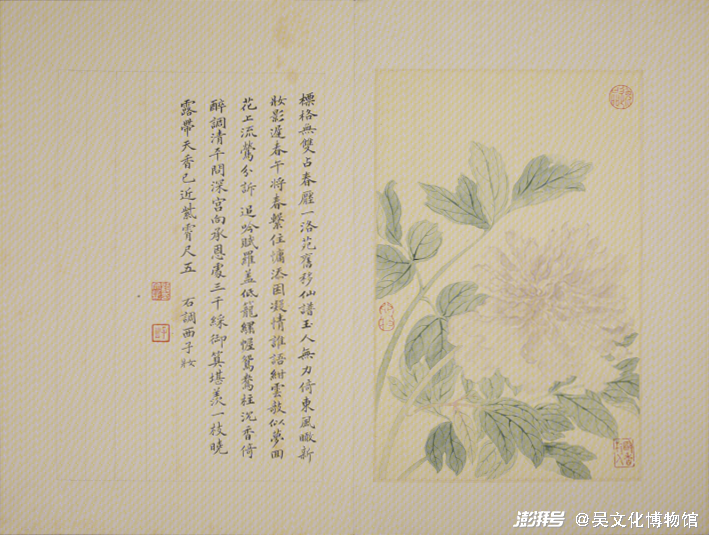 標格無雙占春靨一洛苑舊移仙譜玉人無力倚東風曒新
妝影遲春午將春繫住慵添困凝情誰語紺雲鼓似夢回
花上流鶯分訴 追吟賦羅蓋低籠繡幄鴛鴦柱沉香倚
醉調清平問深宮向承恩處三千綵御算堪羨一枝曉
露帶天香已近紫霄尺五 右調西子妝
澎湃号 @吴文化博物馆